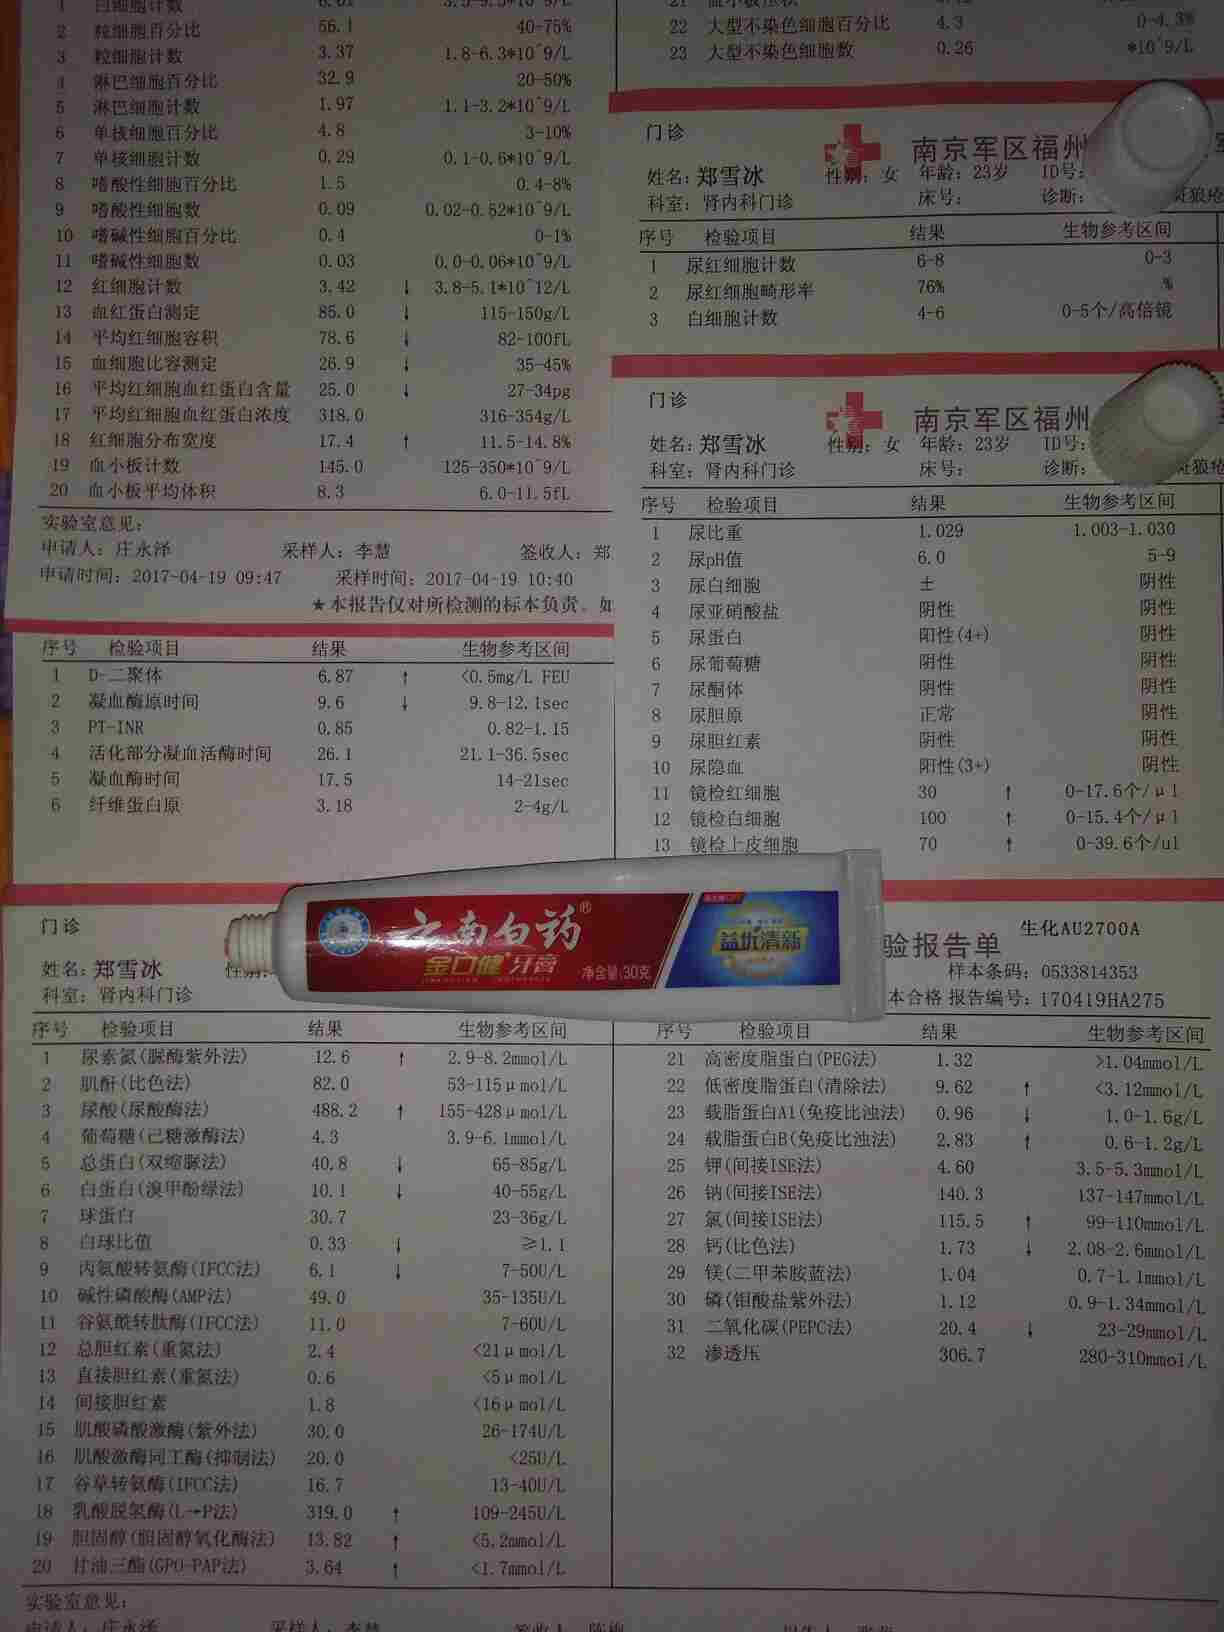 1 白细胞计数 6.01 3.5-9.5*10^9/L
2 粒细胞百分比 56.1 40-75%
3 粒细胞计数 3.37 1.8-6.3*10^9/L
4 淋巴细胞百分比 32.9 20-50%
5 淋巴细胞计数 1.97 1.1-3.2*10^9/L
6 单核细胞百分比 4.8 3-10%
7 单核细胞计数 0.29 0.1-0.6*10^9/L
8 嗜酸性细胞百分比 1.5 0.4-8%
9 嗜酸性细胞数 0.09 0.02-0.52*10^9/L
10 嗜碱性细胞百分比 0.4 0-1%
11 嗜碱性细胞数 0.03 0.0-0.06*10^9/L
12 红细胞计数 3.42 ↓ 3.8-5.1*10^12/L
13 血红蛋白测定 85.0 ↓ 115-150g/L
14 平均红细胞容积 78.6 ↓ 82-100fL
15 血细胞比容测定 26.9 ↓ 35-45%
16 平均红细胞血红蛋白含量 25.0 ↓ 27-34pg
17 平均红细胞血红蛋白浓度 318.0 316-354g/L
18 红细胞分布宽度 17.4 ↑ 11.5-14.8%
19 血小板计数 145.0 125-350*10^9/L
20 血小板平均体积 8.3 6.0-11.5fL
实验室意见：
申请人：庄永泽 采样人：李慧 签收人：郑
申请时间：2017-04-19 09:47 采样时间：2017-04-19 10:40
★本报告仅对所检测的标本负责。如
22 大型不染色细胞百分比 4.3 0-4.3%
23 大型不染色细胞数 0.26 *10^9/L
门诊
南京军区福州
姓名：郑雪冰 性别：女 年龄：23岁 ID号：
科室：肾内科门诊 床号： 诊断： 斑狼疮
序号 检验项目 结果 生物参考区间
1 尿红细胞计数 6-8 0-3
2 尿红细胞畸形率 76% %
3 白细胞计数 4-6 0-5个/高倍镜
门诊
南京军区福州
姓名：郑雪冰 性别：女 年龄：23岁 ID号：
科室：肾内科门诊 床号： 诊断： 斑狼疮
序号 检验项目 结果 生物参考区间
1 尿比重 1.029 1.003-1.030
2 尿pH值 6.0 5-9
3 尿白细胞 ± 阴性
4 尿亚硝酸盐 阴性 阴性
5 尿蛋白 阳性(4+) 阴性
6 尿葡萄糖 阴性 阴性
7 尿酮体 阴性 阴性
8 尿胆原 正常 阴性
9 尿胆红素 阴性 阴性
10 尿隐血 阳性(3+) 阴性
11 镜检红细胞 30 ↑ 0-17.6个/μl
12 镜检白细胞 100 ↑ 0-15.4个/μl
13 镜检上皮细胞 70 ↑ 0-39.6个/ul
序号 检验项目 结果 生物参考区间
1 D-二聚体 6.87 ↑ <0.5mg/L FEU
2 凝血酶原时间 9.6 ↓ 9.8-12.1sec
3 PT-INR 0.85 0.82-1.15
4 活化部分凝血活酶时间 26.1 21.1-36.5sec
5 凝血酶时间 17.5 14-21sec
6 纤维蛋白原 3.18 2-4g/L
云南白药®
金口健 牙膏 净含量:30克
益优清新
门诊
验报告单 生化AU2700A
姓名：郑雪冰 性别： 样本条码：0533814353
科室：肾内科门诊 本合格 报告编号：170419HA275
序号 检验项目 结果 生物参考区间
1 尿素氮(脲酶紫外法) 12.6 ↑ 2.9-8.2mmol/L
2 肌酐(比色法) 82.0 53-115μmol/L
3 尿酸(尿酸酶法) 488.2 ↑ 155-428μmol/L
4 葡萄糖(己糖激酶法) 4.3 3.9-6.1mmol/L
5 总蛋白(双缩脲法) 40.8 ↓ 65-85g/L
6 白蛋白(溴甲酚绿法) 10.1 ↓ 40-55g/L
7 球蛋白 30.7 23-36g/L
8 白球比值 0.33 ↓ ≥1.1
9 丙氨酸转氨酶(IFCC法) 6.1 ↓ 7-50U/L
10 碱性磷酸酶(AMP法) 49.0 35-135U/L
11 谷氨酰转肽酶(IFCC法) 11.0 7-60U/L
12 总胆红素(重氮法) 2.4 <21μmol/L
13 直接胆红素(重氮法) 0.6 <5μmol/L
14 间接胆红素 1.8 <16μmol/L
15 肌酸磷酸激酶(紫外法) 30.0 26-174U/L
16 肌酸激酶同工酶(抑制法) 20.0 <25U/L
17 谷草转氨酶(IFCC法) 16.7 13-40U/L
18 乳酸脱氢酶(L→P法) 319.0 ↑ 109-245U/L
19 胆固醇(胆固醇氧化酶法) 13.82 ↑ <5.2mmol/L
20 甘油三酯(GPO-PAP法) 3.64 ↑ <1.7mmol/L
实验室意见：
申请人：庄永泽 采样人：李慧 签收人：陈
序号 检验项目 结果 生物参考区间
21 高密度脂蛋白(PEG法) 1.32 >1.04mmol/L
22 低密度脂蛋白(清除法) 9.62 ↑ <3.12mmol/L
23 载脂蛋白A1(免疫比浊法) 0.96 ↓ 1.0-1.6g/L
24 载脂蛋白B(免疫比浊法) 2.83 ↑ 0.6-1.2g/L
25 钾(间接ISE法) 4.60 3.5-5.3mmol/L
26 钠(间接ISE法) 140.3 137-147mmol/L
27 氯(间接ISE法) 115.5 ↑ 99-110mmol/L
28 钙(比色法) 1.73 ↓ 2.08-2.6mmol/L
29 镁(二甲苯胺蓝法) 1.04 0.7-1.1mmol/L
30 磷(钼酸盐紫外法) 1.12 0.9-1.34mmol/L
31 二氧化碳(PEPC法) 20.4 ↓ 23-29mmol/L
32 渗透压 306.7 280-310mmol/L